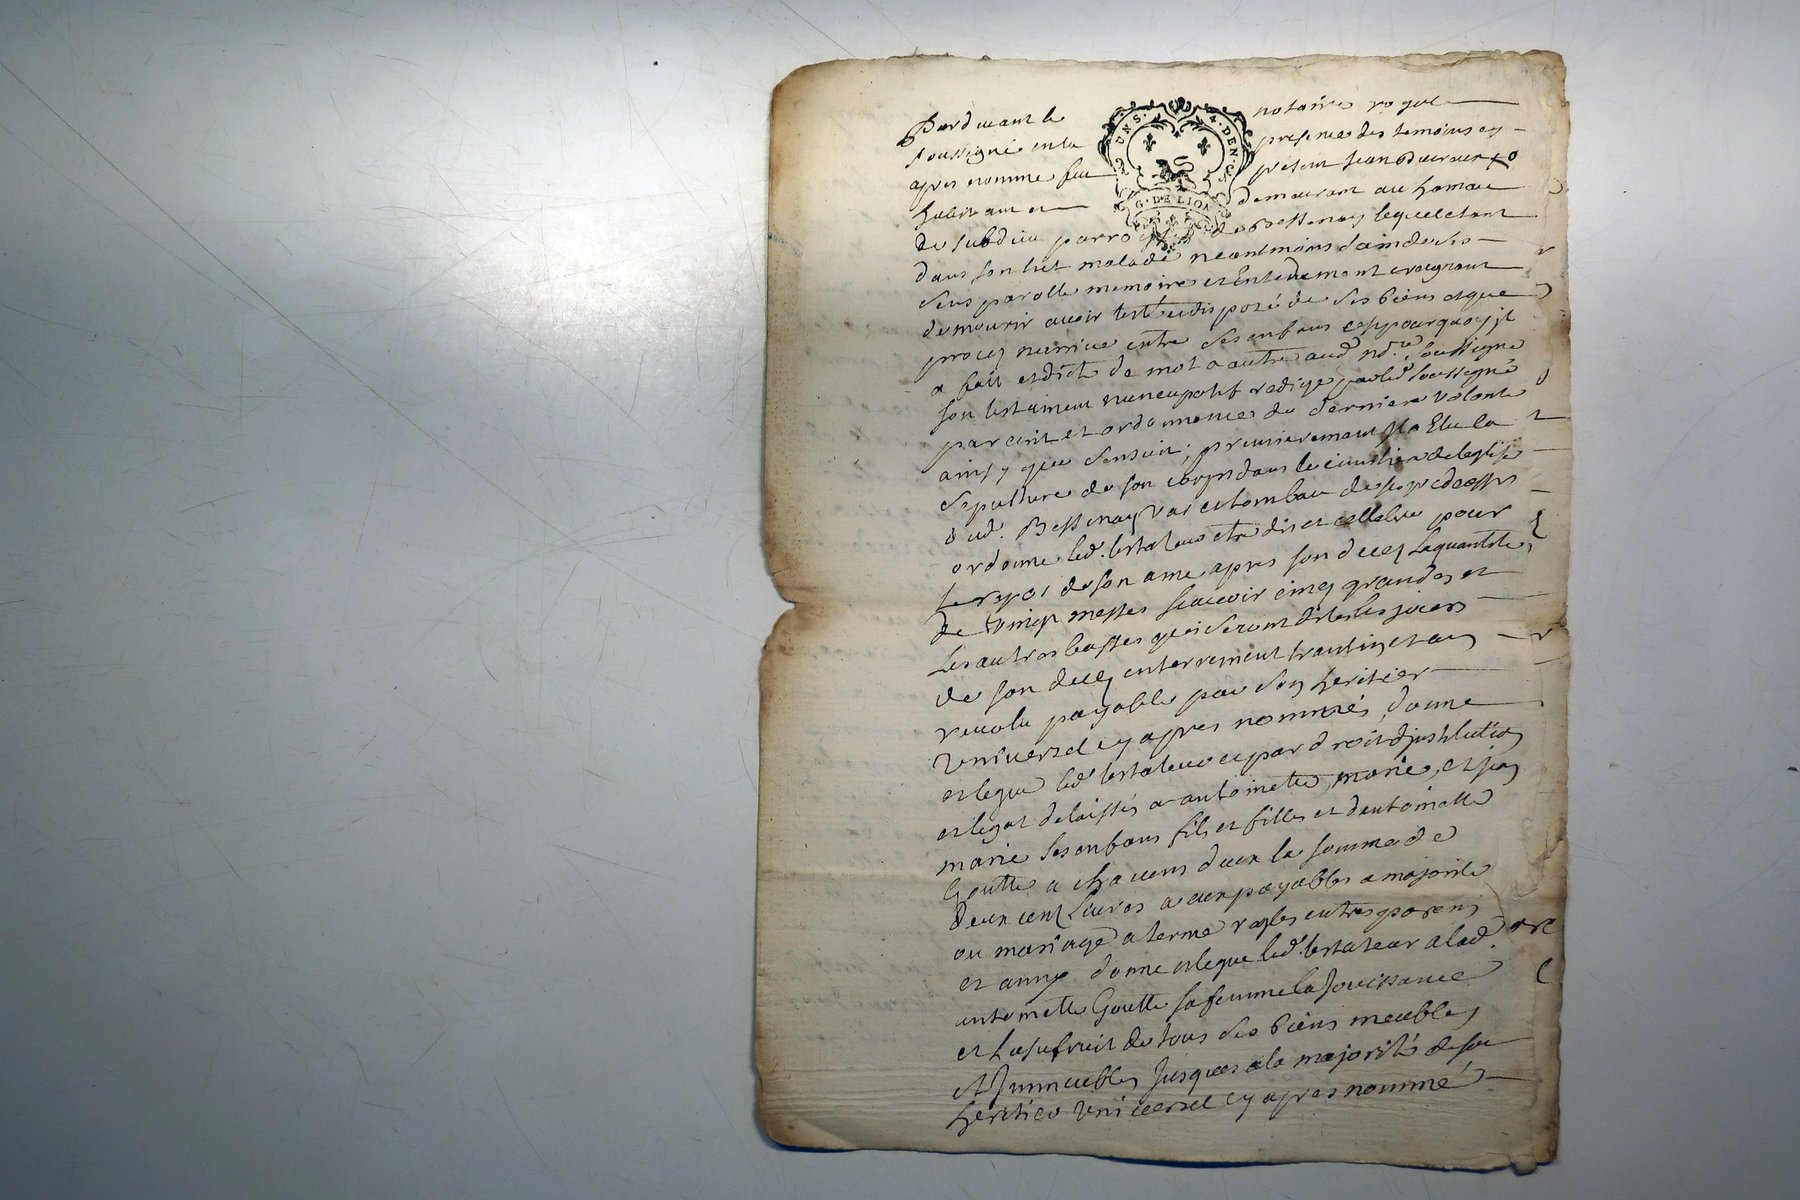 Pardevant le notaire royal
soussigné en la presence des temoins cy
apres nommé fut présent Jean
habitant et demeurant au hameau
de parroisse de Bessenay lequel etant
dans son lict malade neantmoins sain de ses
sens parolle memoire et entendement craignant
de mourir avoir test et disposé de ses biens et que
procez narrive entre ses enfans cest pourquoy il
a fait et dicté de mot a autre aud. no.re soussigné
son testament nuncupatif redigé par led. soussigné
par ecrit et ordonnance de derniere volonté
ainsy que sensuit, premierement il a Elu la
sepulture de son corps dans le cimetiere de leglise
dud. Bessenay vas et tombau de ses predecess.rs
ordonne led. testateur etre dit et cellebré pour
le repos de son ame apres son decez la quantité
de vingt messes scavoir cinq grandes et
les autres basses qui seront dites les jours
de son decez enterrement trantin et an
revolu payable par son heritier
universel cy apres nommés, donne
et legue led. testateur et par droit dinstitution
et legat delaissés a antoinette, marie, et
marie ses enfans fils et filles et dantoinette
Goutte a chacuns deux la somme de
deux cent livres a eux payables a majorité
ou mariage a terme reglés entre parens
et amys donne et legue led. testateur a lad.
antoinette Goutte sa femme la Jouissance
et Usufruit de tous ses biens meubles
et Immeubles Jusques a la majorité de son
heritier universel cy apres nommé
G. DE LION